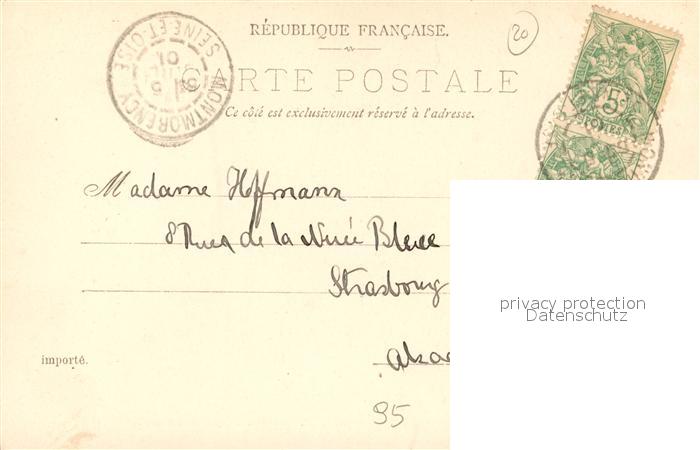 RÉPUBLIQUE FRANÇAISE.
20
CARTE POSTALE
Ce côté est exclusivement réservé à l'adresse.
MONTMORENCY
SEINE-ET-OISE
01
5c
POSTES
Madame Hoffmann
8 Rue de la Nuée Bleue
Strasbourg
privacy protection
Datenschutz
importé.
95